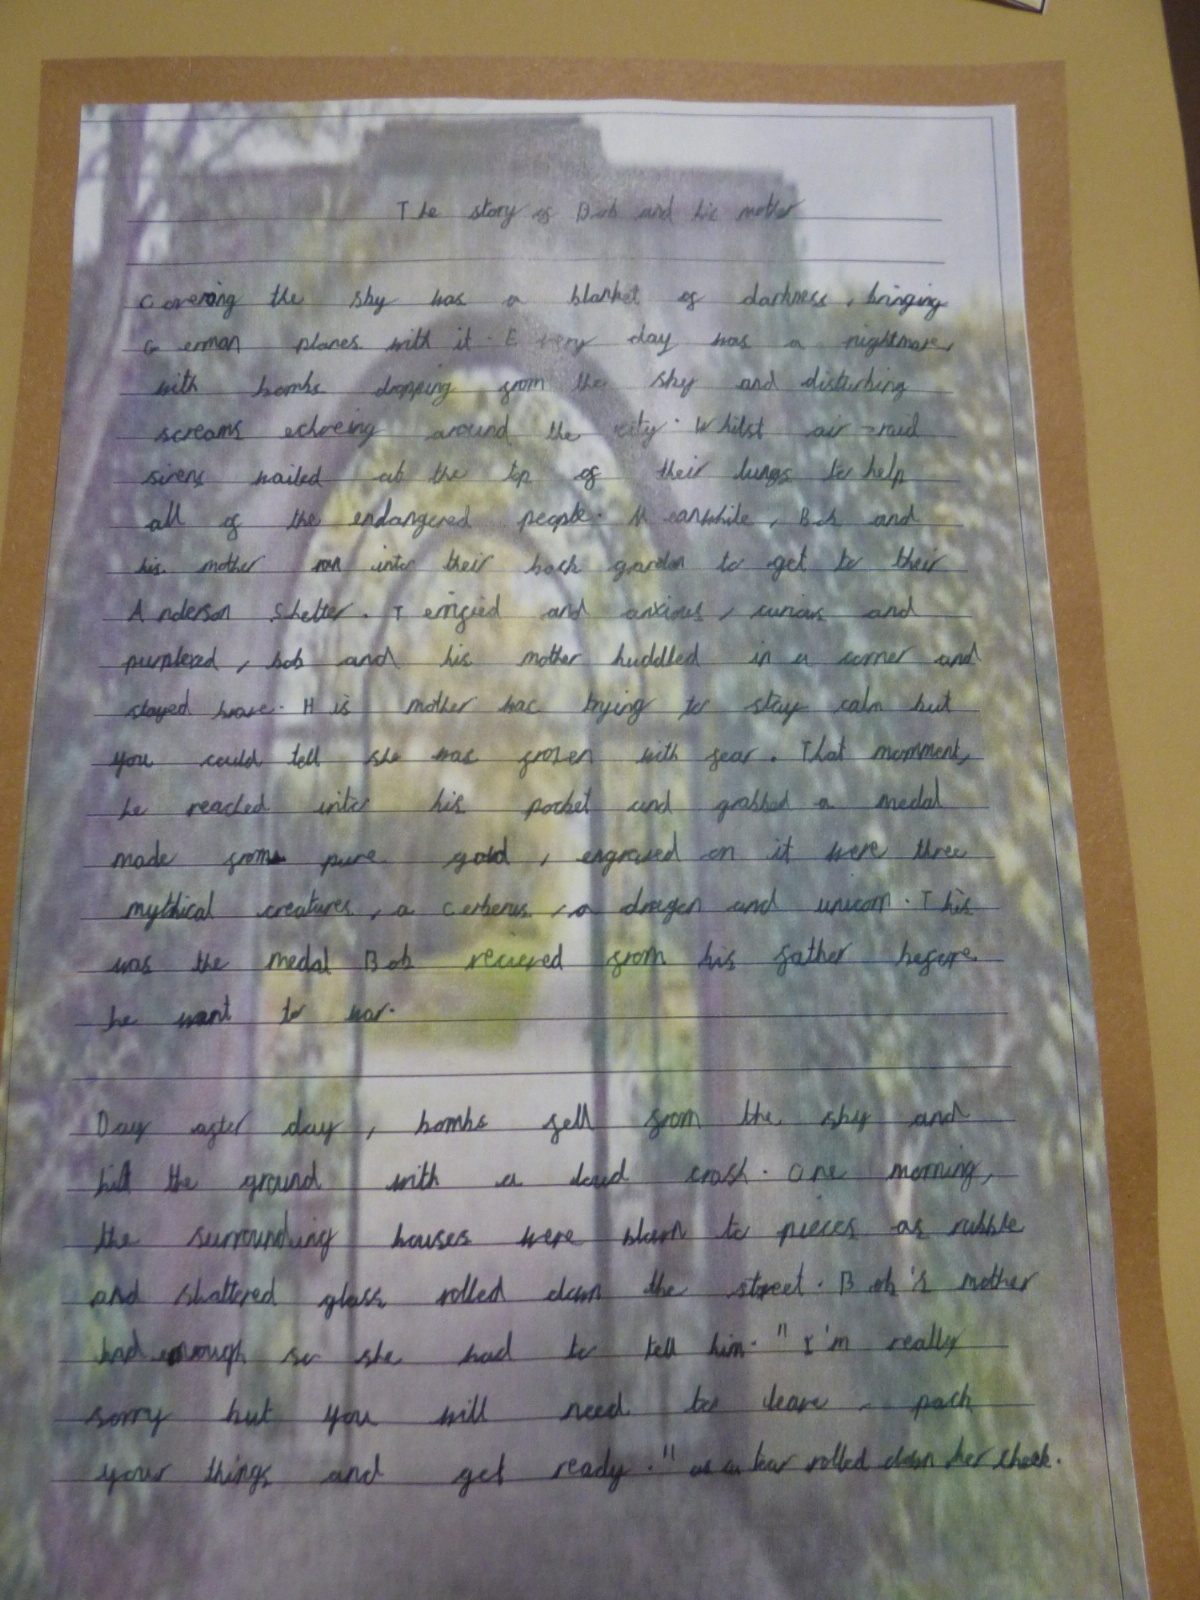 The story of Bob and his mother
Covering the sky was a blanket of darkness, bringing
German planes with it. Every day was a nightmare,
with bombs dropping from the sky and disturbing
screams echoeing around the city. Whilst air-raid
sirens wailed at the top of their lungs to help
all of the endangered people. Meanwhile, Bob and
his mother ran into their back garden to get to their
Anderson Shelter. Terrified and anxious, curious and
purplexed, bob and his mother huddled in a corner and
stayed brave. His mother was trying to stay calm but
you could tell she was frozen with fear. That momment,
he reached into his pocket and grabbed a medal
made from pure gold, engraved on it were three
mythical creatures, a cerberus, a dragon and unicorn. This
was the medal Bob recieved from his father before
he went to war.
Day after day, bombs fell from the sky and
hit the ground with a loud crash. One morning,
the surrounding houses were blown to pieces as rubble
and shattered glass rolled down the street. Bob's mother
had enough so she had to tell him. "I'm really
sorry but you will need to leave, pack
your things and get ready." as a tear rolled down her cheek.